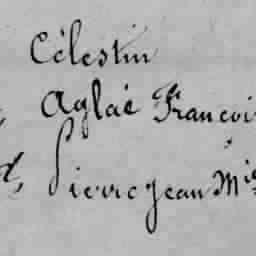 Célestin
Aglaé Francoi
Pierre Jean Mi